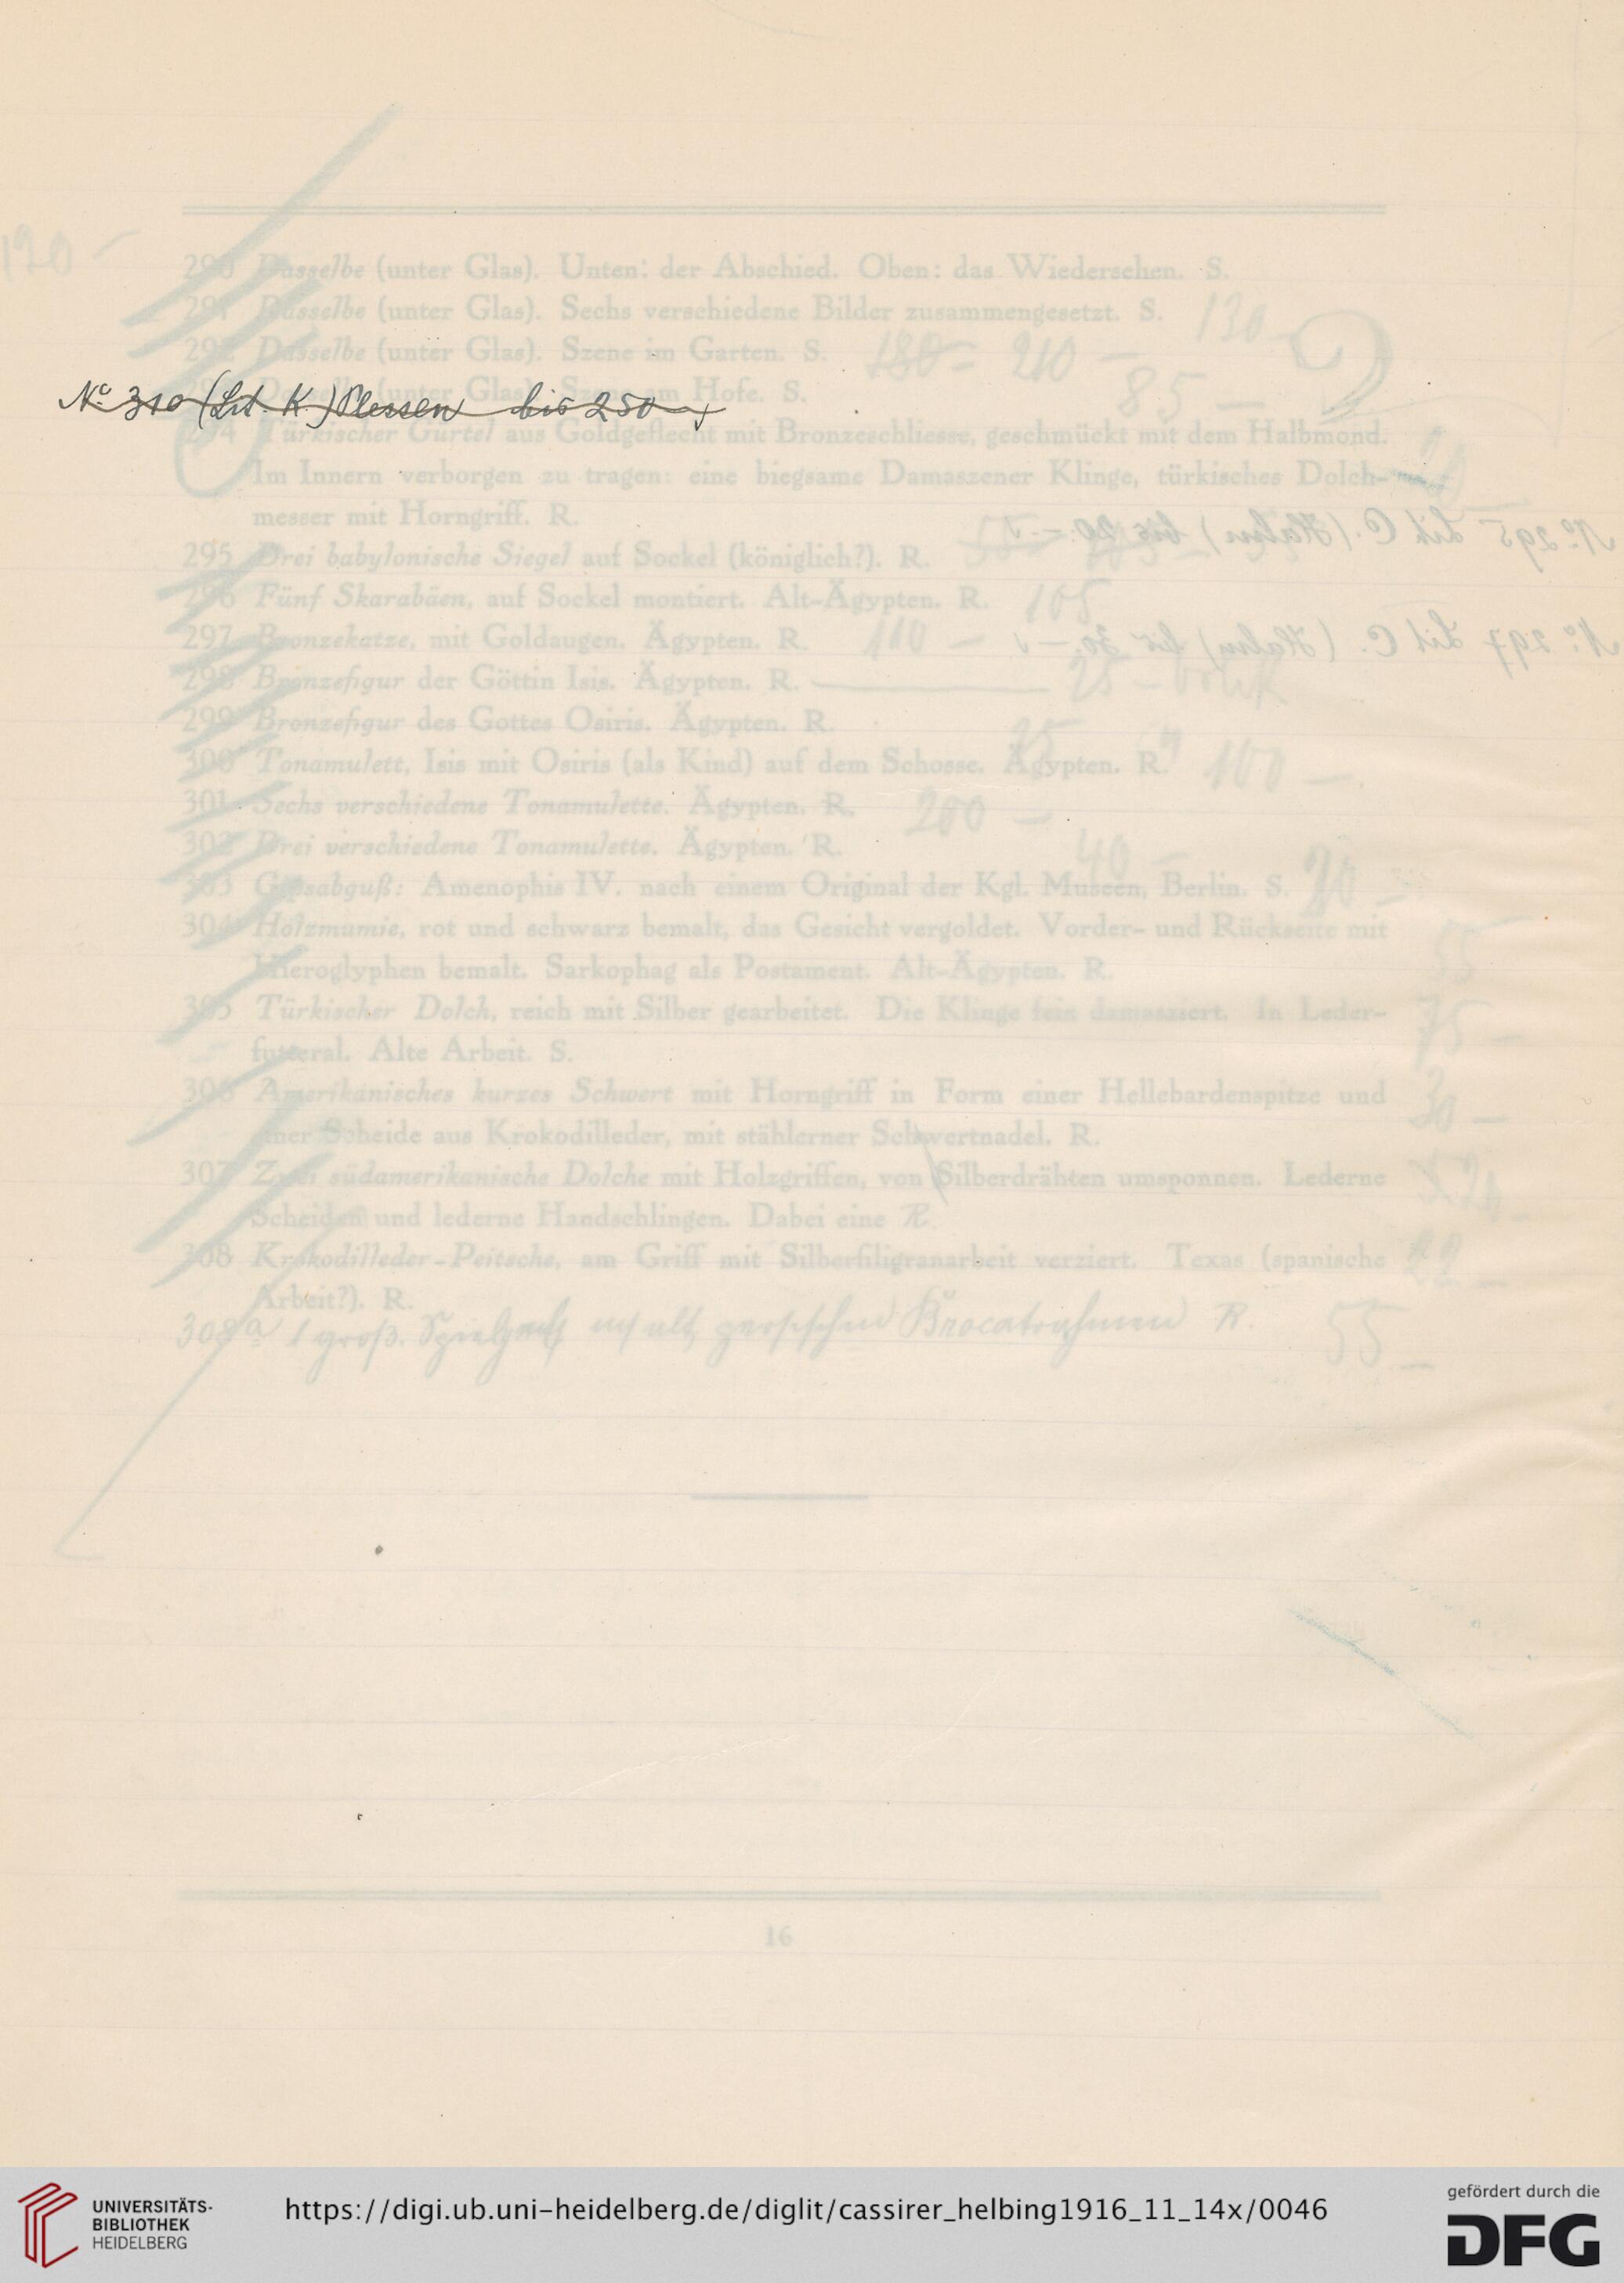 120 —
290 Dasselbe (unter Glas). Unten: der Abschied. Oben: das Wiedersehen. S.
291 Dasselbe (unter Glas). Sechs verschiedene Bilder zusammengesetzt. S. 130
292 Dasselbe (unter Glas). Szene im Garten. S. 180 = 210 —
293 Dasselbe (unter Glas). Szene am Hofe. S. 85 —
No. 310 (Lit. K.) Plessen bis 250
294 Türkischer Gürtel aus Goldgeflecht mit Bronzeschliesse, geschmückt mit dem Halbmond.
Im Innern verborgen zu tragen: eine biegsame Damaszener Klinge, türkisches Dolch-
messer mit Horngriff. R.
No. 295 Lit C. (Hahn) bis 20.—
295 Drei babylonische Siegel auf Sockel (königlich?). R.
296 Fünf Skarabäen, auf Sockel montiert. Alt-Ägypten. R. 105
297 Bronzekatze, mit Goldaugen. Ägypten. R. 110 —
No. 297 Lit C. (Hahn) bis 30.—
298 Bronzefigur der Göttin Isis. Ägypten. R. 25 —
299 Bronzefigur des Gottes Osiris. Ägypten. R.
300 Tonamulett, Isis mit Osiris (als Kind) auf dem Schosse. Ägypten. R. 100 —
301 Sechs verschiedene Tonamulette. Ägypten. R. 200 —
302 Drei verschiedene Tonamulette. Ägypten. R. 40 —
303 Gipsabguß: Amenophis IV. nach einem Original der Kgl. Museen, Berlin. S.
304 Holzmumie, rot und schwarz bemalt, das Gesicht vergoldet. Vorder- und Rückseite mit
Hieroglyphen bemalt. Sarkophag als Postament. Alt-Ägypten. R. 55
305 Türkischer Dolch, reich mit Silber gearbeitet. Die Klinge fein damasziert. In Leder-
futteral. Alte Arbeit. S. 75 —
306 Amerikanisches kurzes Schwert mit Horngriff in Form einer Hellebardenspitze und
einer Scheide aus Krokodilleder, mit stählerner Schwertnadel. R. 30 —
307 Zwei südamerikanische Dolche mit Holzgriffen, von Silberdrähten umsponnen. Lederne
Scheiden und lederne Handschlingen. Dabei eine R.
308 Krokodilleder-Peitsche, am Griff mit Silberfiligranarbeit verziert. Texas (spanische
Arbeit?). R.
308a 1 groß. R. 55 —
16
UNIVERSITÄTS-
BIBLIOTHEK
HEIDELBERG
https://digi.ub.uni-heidelberg.de/diglit/cassirer_helbing1916_11_14x/0046
gefördert durch die
DFG